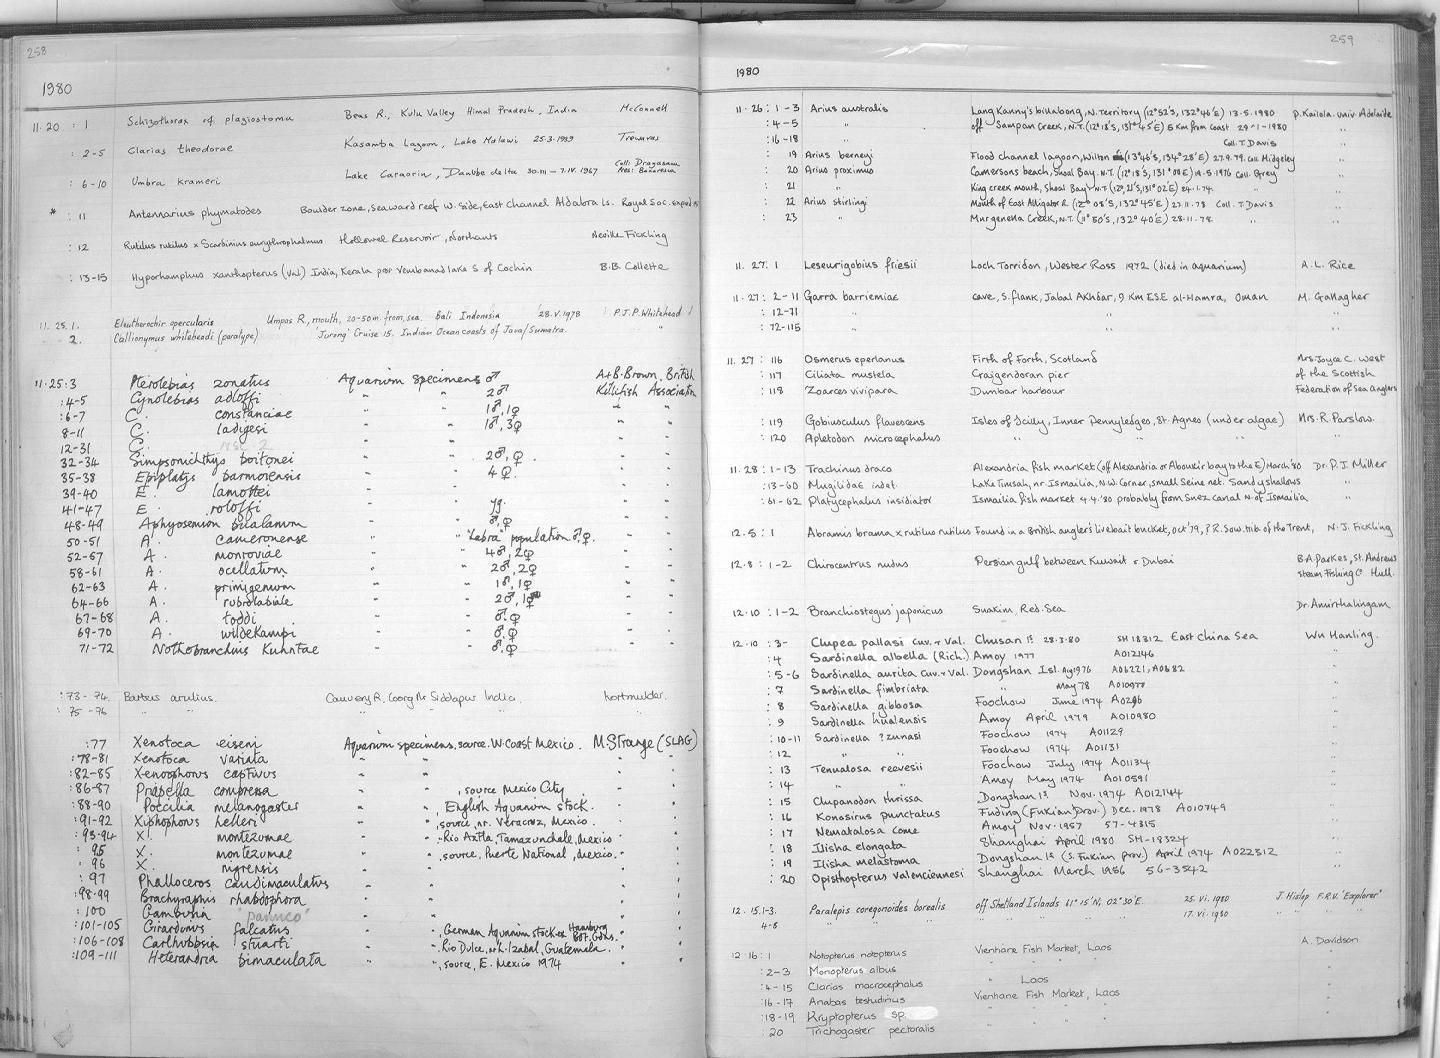 258
1980
11.20 : 1 Schizothorax cf plagiostomu Beas R., Kulu Valley Himal Pradesh, India McConnell
: 2-5 Clarias theodorae Kasamba Lagoon, Lake Malawi 25.3.1939 Trewavas
: 6-10 Umbra krameri Lake Caraorin, Danube delta 30.III - 7.IV.1967 Coll: Dragasanu Pres: Banarescu
* : 11 Antennarius phymatodes Boulder zone, Seaward reef W. side, East Channel Aldabra Is. Royal Soc. exped
: 12 Rutilus rutilus x Scardinius eurythrophalmus Hollowel Reservoir, Northants Neville Fickling
: 13-15 Hyporhamphus xanthopterus (Val) India, Kerala pov Vembanad lake S of Cochin B.B. Collette
11.25.1. Eleutherochir opercularis Umpas R., mouth, 20-50m. from sea. Bali Indonesia 28.V.1978 P.J.P. Whitehead
2. Callionymus whiteheadi (paratype) 'Jurong' Cruise 15. Indian Ocean coasts of Java/Sumatra. "
11.25:3 Pterolebias zonatus Aquarium specimens ♂ A+B. Brown, British
:4-5 Cynolebias adloffi " " 2♂ Killifish Association
:6-7 C. constanciae " " 1♂, 1♀ " "
8-11 C. ladigesi " " 1♂, 3♀ " "
12-31 C.
32-34 Simpsonichthys boitonei " " 2♂, ♀. " "
35-38 Epiplatys barmoiensis " " 4♀. " "
39-40 E. lamottei " " " "
41-47 E. roloffi " " yg. " "
48-49 Aphyosemion bualanum " " ♂, ♀ " "
50-51 A. cameronense " " "Labra" population ♂, ♀. " "
52-57 A. monroviae " " 4♂, 2♀ " "
58-61 A. ocellatum " " 2♂, 2♀ " "
62-63 A. primigenium " " 1♂, 1♀ " "
64-66 A. rubrolabiale " " 2♂, 1♀ " "
67-68 A. toddi " " ♂, ♀ " "
69-70 A. wildekampi " " ♂, ♀ " "
71-72 Nothobranchius Kuhntae " " ♂, ♀ " "
:73-74. Barbus arulius. Cauvery R, Coorg Nr Siddapur India. Kortmulder.
: 75-76 " " " " " "
:77 Xenotoca eiseni Aquarium specimens, source. W. Coast Mexico. M. Strange (SLAG)
:78-81 Xenotoca variata " " " "
:82-85 Xenoophorus captivus " " " "
:86-87 Priapella compressa " ", source Mexico City " "
:88-90 Poecilia melanogaster " ", English Aquarium stock. " "
:91-92 Xiphophorus helleri " ", source, nr. Veracruz, Mexico. " "
:93-94 X. montezumae " ", Rio Axtla, Tamazunchale, Mexico " "
: 95 X. montezumae " ", source, Puerte National, Mexico. " "
: 96 X. nigrensis " " " "
: 97 Phalloceros caudimaculatus " " " "
:98-99 Brachyraphis rhabdophora " " " "
:100 Gambusia "panuco" " " " "
:101-105 Girardinus falcatus " ", German Aquarium stock ex Hamburg Bot. Gdns. " "
:106-108 Carlhubbsia stuarti " ", Rio Dulce, nr. L. Izabal, Guatemala. " "
:109-111 Heterandria bimaculata " ", source, E. Mexico 1974 " "
259
1980
11.26 : 1-3 Arius australis Lang Kanny's billabong, N. Territory (12°52'S, 132°46'E) 13.5.1980 P. Kailola. Univ. Adelaide
: 4-5 " off Sampan Creek, N.T. (12°18'S, 131°45'E) 5 Km from Coast 29-1-1980 "
:16-18 " Coll. T. Davis
19 Arius berneyi Flood channel lagoon, Wilton (13°46'S, 134°28'E) 27.9.79. Coll Midgeley
20 Arius proximus Camersons beach, Shoal Bay. N.T. (12°18'S, 131°08'E) 19.5.1976 Coll. Grey "
21 " King creek mouth, Shoal Bay N.T (12°21'S, 131°02'E) 24.1.74.
22 Arius stirlingi Mouth of East Alligator R (12°08'S, 132°45'E) 27.11.78 Coll. T. Davis
23 " Murgenella Creek, N.T. (11°50'S, 132°40'E) 28.11.78. " "
11.27:1 Leseurigobius friesii Loch Torridon, Wester Ross 1972 (died in aquarium) A.L. Rice
11.27: 2-11 Garra barriemiae cave, S. flank, Jabal Akhdar, 9 Km ESE al-Hamra, Oman M. Gallagher
: 12-71 " " " "
: 72-115 " " " "
11.27 : 116 Osmerus eperlanus Firth of Forth, Scotland Mrs. Joyce C. West
:117 Ciliata mustela Craigendoran pier of the Scottish
:118 Zoarces vivipara Dunbar harbour Federation of Sea anglers
:119 Gobiusculus flavescens Isles of Scilly, Inner Pennyledges, St. Agnes (under algae) Mrs. R. Parslow.
:120 Apletodon microcephalus " " " " "
11.28 : 1-13 Trachinus draco Alexandria fish market (off Alexandria or Aboukir bay to the E) March '80 Dr. P.J. Miller
:13-60 Mugilidae indet. Lake Timsah, nr. Ismailia, N.W. Corner, small seine net. Sandy shallows "
:61-62 Platycephalus insidiator Ismailia fish market 4.4.'80 probably from Suez canal N. of Ismailia "
12.5 : 1 Abramis brama x rutilus rutilus Found in a British angler's livebait bucket, Oct '79, ?R. Sow. trib. of the Trent, N.J. Fickling
12.8 : 1-2 Chirocentrus nudus Persian gulf between Kuwait & Dubai B.A. Parkes, St. Andrews
Steam Fishing Co Hull.
12.10 : 1-2 Branchiostegus japonicus Suakim, Red. Sea Dr. Amirthalingam
12.10 : 3- Clupea pallasi Cuv. & Val. Chusan Is. 28.3.80 SH 18312 East China Sea Wu Hanling.
:4 Sardinella albella (Rich.) Amoy 1977 A012146 "
:5-6 Sardinella aurita Cuv. & Val. Dongshan Isl. Aug 1976 A06221, A0682 "
:7 Sardinella fimbriata " May 78 A010977 "
:8 Sardinella gibbosa Foochow June 1974 A0296 "
:9 Sardinella hualensis Amoy April 1979 A010980 "
:10-11 Sardinella ?zunasi Foochow 1974 A01129 "
:12 " " Foochow 1974 A01131 "
:13 Tenualosa reevesii Foochow July 1974 A01134 "
:14 " " Amoy May 1974 A010591 "
:15 Clupanodon thrissa Dongshan Is. Nov. 1974 A012144 "
:16 Konosirus punctatus Fuding (Fukian Prov.) Dec. 1978 A010749 "
:17 Nematalosa come Amoy Nov. 1957 57-4315 "
:18 Ilisha elongata Shanghai April 1980 SH-18324 "
:19 Ilisha melastoma Dongshan Is (S. Fukian prov.) April 1974 A022312 "
20 Opisthopterus valenciennesi Shanghai March 1956 56-3542 "
12.15.1-3. Paralepis coregonoides borealis off Shetland Islands 61°15'N, 02°30'E. 25.VI.1980 J. Hislop F.R.V. 'Explorer'
4-8 " " " " " " 17.VI.1980 "
12 16:1 Notopterus notopterus Vienhane Fish Market, Laos A. Davidson
:2-3 Monopterus albus " " " "
:4-15 Clarias macrocephalus Laos "
:16-17 Anabas testudinus Vienhane Fish Market, Laos "
:18-19 Kryptopterus sp. " " " "
:20 Trichogaster pectoralis " " " "